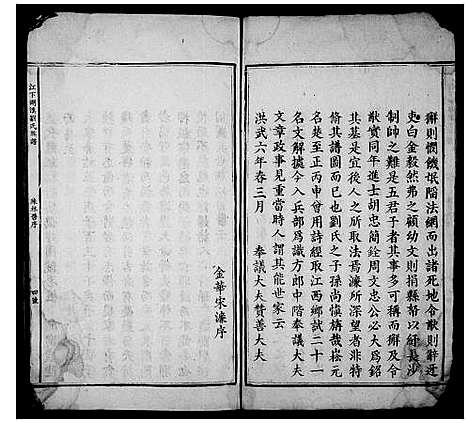 癬則憫饑氓陷法網而出諸死地令猷則辭近
吏白金毅然弗之顧幼文則捐縣帑以紓長沙
制帥之難是五君子者其事多可稱而癬及令
猷實同年進士胡忠簡銓周文忠公必大為銘
其墓是宜後人之所取法焉濂所深望者非特
脩其譜圖而已也劉氏之子孫尚慎旃哉崧元
名楚至正丙申曾用詩經取江西鄉試二十一
名文解據今入兵部為職方郎中階奉議大夫
文章政事見重當時人謂其能世家云
洪武六年春三月 奉議大夫贊善大夫
金華宋濂序
劉氏族譜
序
四